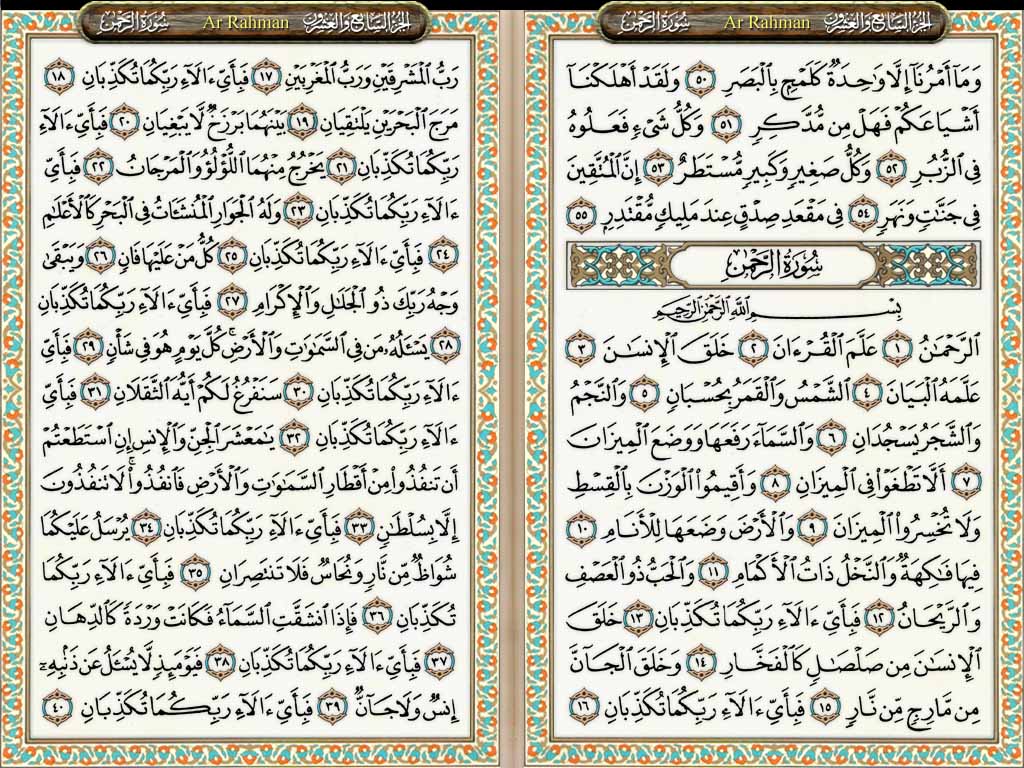 سُورَةُ الرَّحْمَٰن Ar Rahman الجُزْءُ السَّابِعُ وَالعِشْرُونَ
وَمَآ أَمْرُنَآ إِلَّا وَٰحِدَةٌ كَلَمْحٍۭ بِٱلْبَصَرِ ٥٠ وَلَقَدْ أَهْلَكْنَآ
أَشْيَاعَكُمْ فَهَلْ مِن مُّدَّكِرٍ ٥١ وَكُلُّ شَىْءٍ فَعَلُوهُ
فِى ٱلزُّبُرِ ٥٢ وَكُلُّ صَغِيرٍ وَكَبِيرٍ مُّسْتَطَرٌ ٥٣ إِنَّ ٱلْمُتَّقِينَ
فِى جَنَّٰتٍ وَنَهَرٍ ٥٤ فِى مَقْعَدِ صِدْقٍ عِندَ مَلِيكٍ مُّقْتَدِرٍۭ ٥٥
سُورَةُ الرَّحْمَٰن
بِسْمِ ٱللَّهِ ٱلرَّحْمَٰنِ ٱلرَّحِيمِ
ٱلرَّحْمَٰنُ ١ عَلَّمَ ٱلْقُرْءَانَ ٢ خَلَقَ ٱلْإِنسَٰنَ ٣
عَلَّمَهُ ٱلْبَيَانَ ٤ ٱلشَّمْسُ وَٱلْقَمَرُ بِحُسْبَانٍ ٥ وَٱلنَّجْمُ
وَٱلشَّجَرُ يَسْجُدَانِ ٦ وَٱلسَّمَآءَ رَفَعَهَا وَوَضَعَ ٱلْمِيزَانَ
٧ أَلَّا تَطْغَوْا۟ فِى ٱلْمِيزَانِ ٨ وَأَقِيمُوا۟ ٱلْوَزْنَ بِٱلْقِسْطِ
وَلَا تُخْسِرُوا۟ ٱلْمِيزَانَ ٩ وَٱلْأَرْضَ وَضَعَهَا لِلْأَنَامِ ١٠
فِيهَا فَٰكِهَةٌ وَٱلنَّخْلُ ذَاتُ ٱلْأَكْمَامِ ١١ وَٱلْحَبُّ ذُو ٱلْعَصْفِ
وَٱلرَّيْحَانُ ١٢ فَبِأَىِّ ءَالَآءِ رَبِّكُمَا تُكَذِّبَانِ ١٣ خَلَقَ
ٱلْإِنسَٰنَ مِن صَلْصَٰلٍ كَٱلْفَخَّارِ ١٤ وَخَلَقَ ٱلْجَآنَّ
مِن مَّارِجٍ مِّن نَّارٍ ١٥ فَبِأَىِّ ءَالَآءِ رَبِّكُمَا تُكَذِّبَانِ ١٦
سُورَةُ الرَّحْمَٰن Ar Rahman الجُزْءُ السَّابِعُ وَالعِشْرُونَ
رَبُّ ٱلْمَشْرِقَيْنِ وَرَبُّ ٱلْمَغْرِبَيْنِ ١٧ فَبِأَىِّ ءَالَآءِ رَبِّكُمَا تُكَذِّبَانِ ١٨
مَرَجَ ٱلْبَحْرَيْنِ يَلْتَقِيَانِ ١٩ بَيْنَهُمَا بَرْزَخٌ لَّا يَبْغِيَانِ ٢٠ فَبِأَىِّ ءَالَآءِ
رَبِّكُمَا تُكَذِّبَانِ ٢١ يَخْرُجُ مِنْهُمَا ٱللُّؤْلُؤُ وَٱلْمَرْجَانُ ٢٢ فَبِأَىِّ
ءَالَآءِ رَبِّكُمَا تُكَذِّبَانِ ٢٣ وَلَهُ ٱلْجَوَارِ ٱلْمُنشَـَٔاتُ فِى ٱلْبَحْرِ كَٱلْأَعْلَٰمِ
٢٤ فَبِأَىِّ ءَالَآءِ رَبِّكُمَا تُكَذِّبَانِ ٢٥ كُلُّ مَنْ عَلَيْهَا فَانٍ ٢٦ وَيَبْقَىٰ
وَجْهُ رَبِّكَ ذُو ٱلْجَلَٰلِ وَٱلْإِكْرَامِ ٢٧ فَبِأَىِّ ءَالَآءِ رَبِّكُمَا تُكَذِّبَانِ
٢٨ يَسْـَٔلُهُۥ مَن فِى ٱلسَّمَٰوَٰتِ وَٱلْأَرْضِ ۚ كُلَّ يَوْمٍ هُوَ فِى شَأْنٍ ٢٩ فَبِأَىِّ
ءَالَآءِ رَبِّكُمَا تُكَذِّبَانِ ٣٠ سَنَفْرُغُ لَكُمْ أَيُّهَ ٱلثَّقَلَانِ ٣١ فَبِأَىِّ
ءَالَآءِ رَبِّكُمَا تُكَذِّبَانِ ٣٢ يَٰمَعْشَرَ ٱلْجِنِّ وَٱلْإِنسِ إِنِ ٱسْتَطَعْتُمْ
أَن تَنفُذُوا۟ مِنْ أَقْطَارِ ٱلسَّمَٰوَٰتِ وَٱلْأَرْضِ فَٱنفُذُوا۟ ۚ لَا تَنفُذُونَ
إِلَّا بِسُلْطَٰنٍ ٣٣ فَبِأَىِّ ءَالَآءِ رَبِّكُمَا تُكَذِّبَانِ ٣٤ يُرْسَلُ عَلَيْكُمَا
شُوَاظٌ مِّن نَّارٍ وَنُحَاسٌ فَلَا تَنتَصِرَانِ ٣٥ فَبِأَىِّ ءَالَآءِ رَبِّكُمَا
تُكَذِّبَانِ ٣٦ فَإِذَا ٱنشَقَّتِ ٱلسَّمَآءُ فَكَانَتْ وَرْدَةً كَٱلدِّهَانِ
٣٧ فَبِأَىِّ ءَالَآءِ رَبِّكُمَا تُكَذِّبَانِ ٣٨ فَيَوْمَئِذٍ لَّا يُسْـَٔلُ عَن ذَنۢبِهِۦٓ
إِنسٌ وَلَا جَآنٌّ ٣٩ فَبِأَىِّ ءَالَآءِ رَبِّكُمَا تُكَذِّبَانِ ٤٠